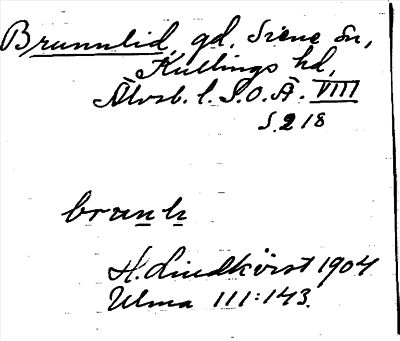 Brunnlid, gd. Siene sn,
Kullings hd,
Älvsb. l. S.O.Ä. VIII
S. 218
brun li
H. Lindkvist 1904
Ulma 111:143.